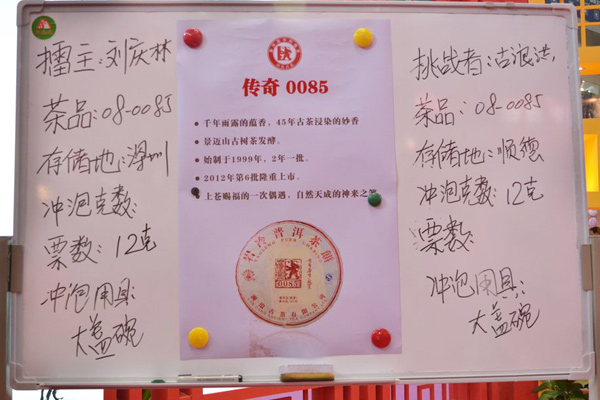 擂主:刘庆林
茶品:08-0085
存储地:深圳
冲泡克数:
票数:12克
冲泡用具:
大盖碗
传奇 0085
千年雨露的蕴香,45年古茶浸染的妙香
景迈山古树茶发酵。
始制于1999年,2年一批。
2012年第6批隆重上市。
上苍赐福的一次偶遇,自然天成的神来之
岩冷普洱茶
0085
挑战者:古浪洪
茶品:08-0085
存储地:顺德
冲泡克数:12克
票数:
冲泡用具:
大盖碗